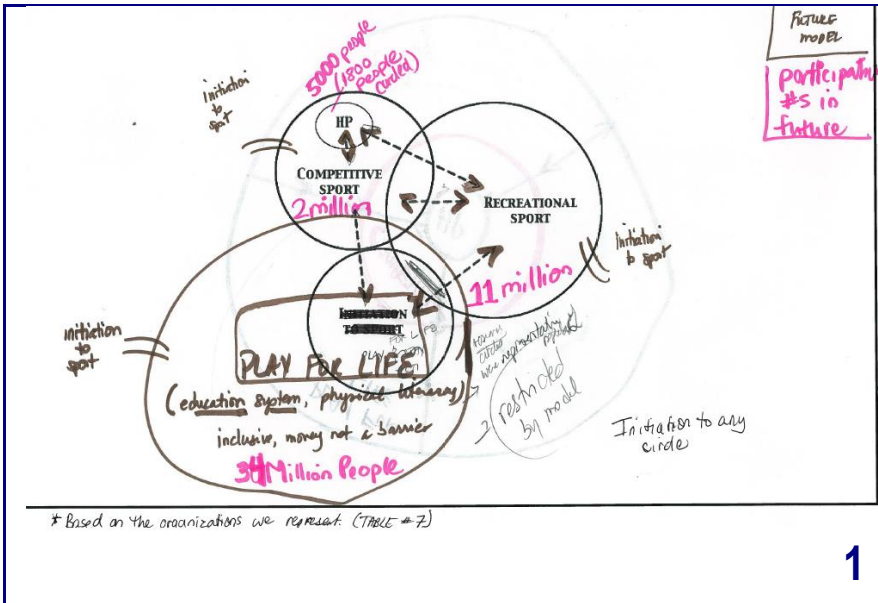 FUTURE
MODEL
participation
#s in
future
5000 people
(1800
people
carded)
Initiation
to
sport
HP
COMPETITIVE
SPORT
2 million
RECREATIONAL
SPORT
11 million
Initiation
to sport
initiation
to
sport
INITIATION
TO SPORT
PLAY FOR LIFE
(education system, physical literacy)
inclusive, money not a barrier
34 Million People
restricted
by model
Initiation to any
circle
* Based on the organizations we represent. (TABLE # 7)
1